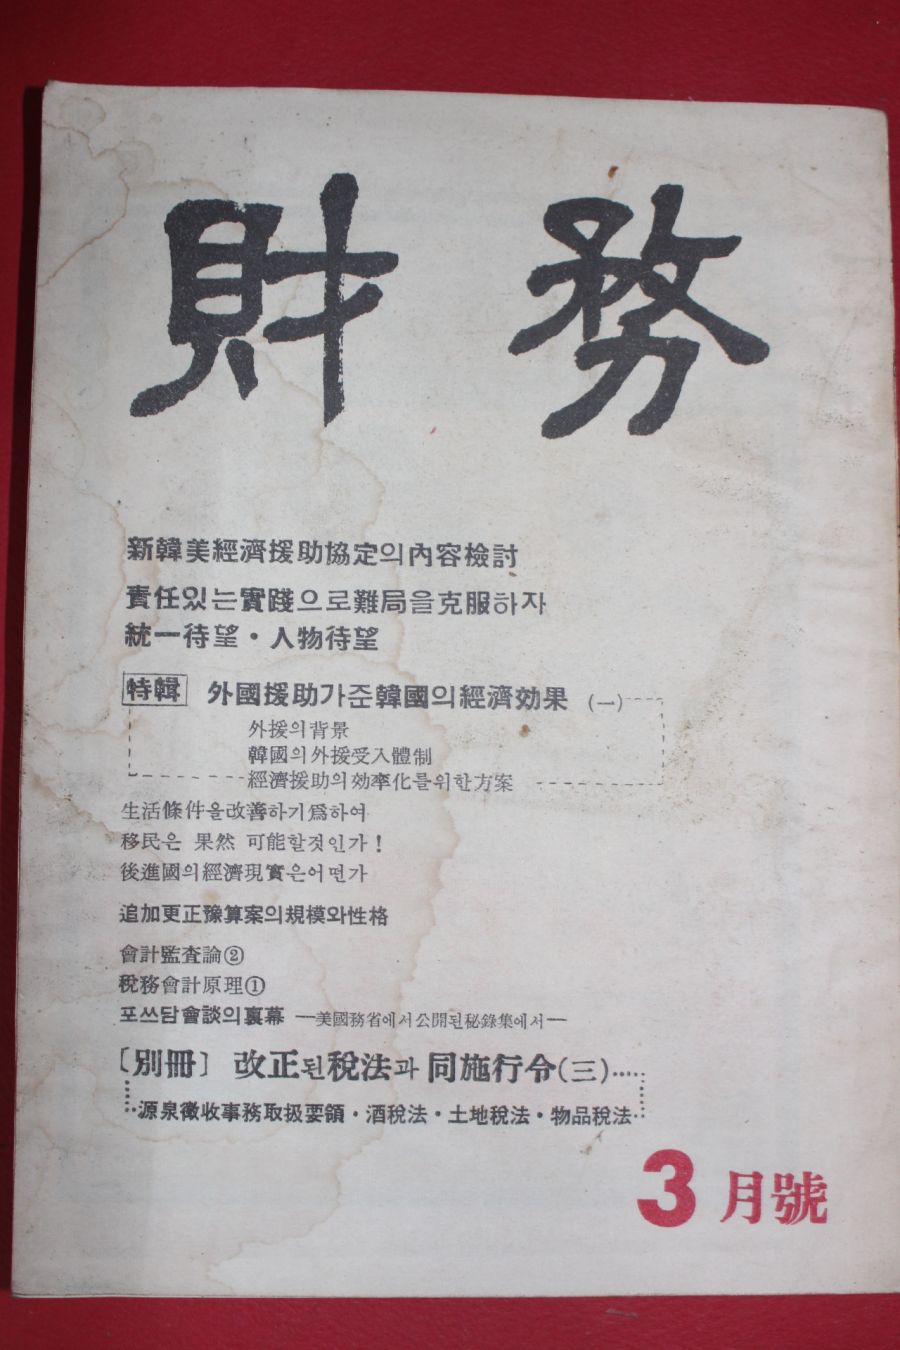 財務
新韓美經濟援助協定의內容檢討
責任있는實踐으로難局을克服하자
統一待望・人物待望
特輯 外國援助가준韓國의經濟効果 (一)
外援의背景
韓國의外援受入體制
經濟援助의効率化를위한方案
生活條件을改善하기爲하여
移民은 果然 可能할것인가!
後進國의經濟現實은어떤가
追加更正豫算案의規模와性格
會計監査論②
稅務會計原理①
포쓰담會談의裏幕 —美國務省에서公開된秘錄集에서—
〔別冊〕 改正된稅法과 同施行令(三)
源泉徵收事務取扱要領・酒稅法・土地稅法・物品稅法
3月號